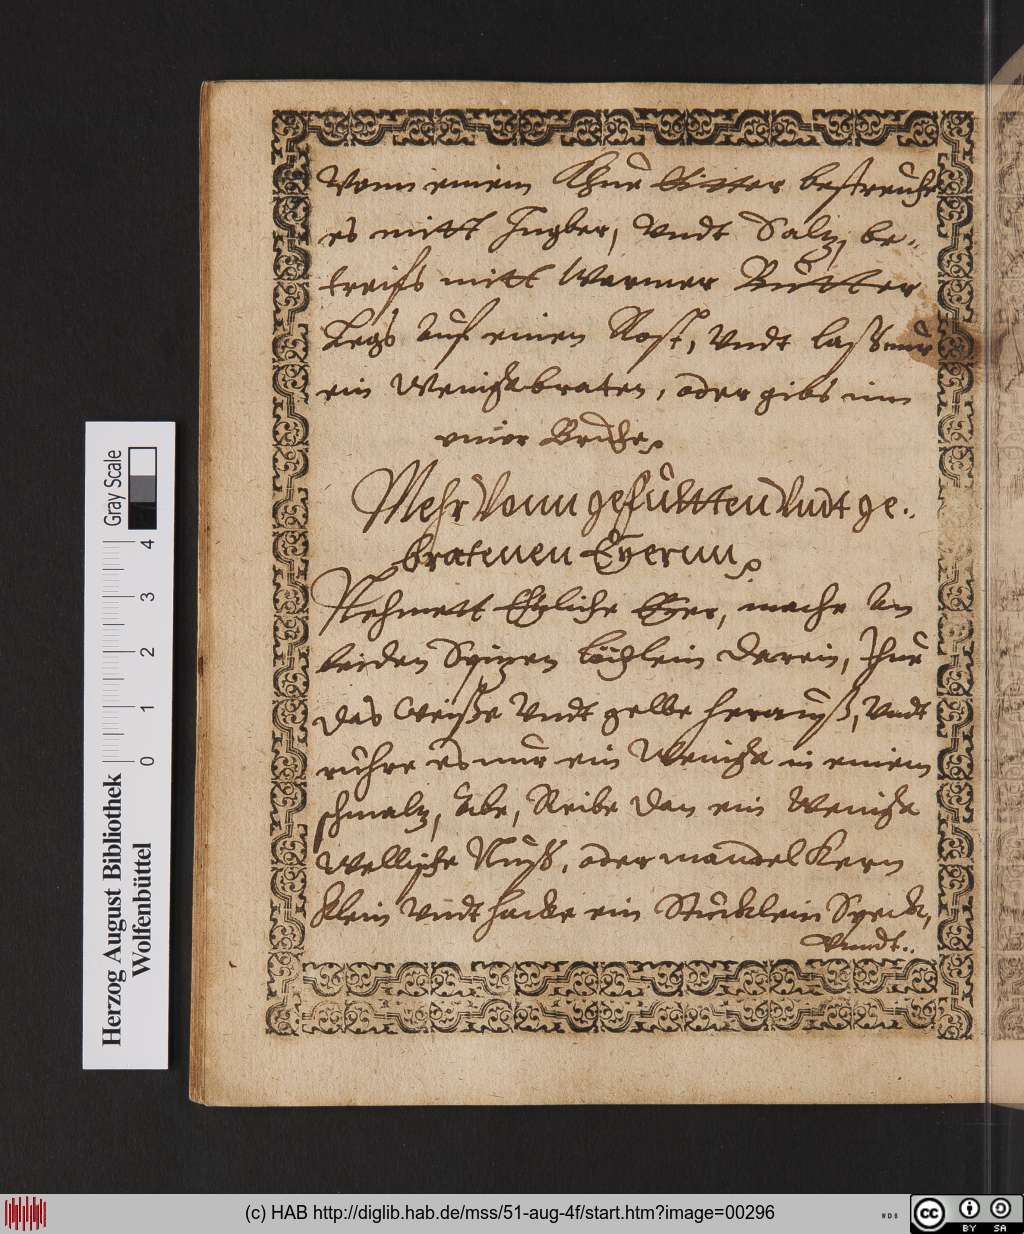 Vonn einem Khue Eitter bestreuhe
es mitt Ingber, Vndt Saltz, be-
treifs mitt Warmer Butter
Legs Auf einen Rost, Vndt lass nur
ein Wenigk braten, oder gibs inn
einer Brühe
Mehr Vonn gefultten Vndt ge-
bratenen Eyernn
Nehmett Ettliche Eyer, mache An
beiden Spizen löchlein darein, Thue
das Weisse Vndt gelbe herauß, Vndt
ruhre es nur ein Wenigk in einem
schmaltz, Abe, Reibe dan ein Wenigk
Wellische Nuss, oder mandel Kern
klein Vndt hacke ein Stücklein Speck,
Vnndt..
Herzog August Bibliothek
Wolfenbüttel
Gray Scale
0 1 2 3 4
(c) HAB http://diglib.hab.de/mss/51-aug-4f/start.htm?image=00296
WDB
cc BY SA